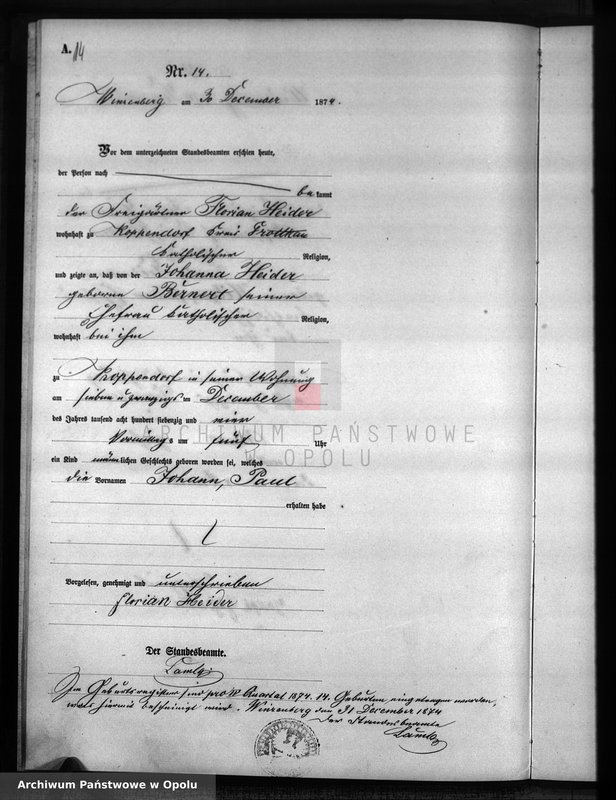 A. 14
Nr. 14.
Winzenberg am 30 December 1874.
Vor dem unterzeichneten Standesbeamten erschien heute,
der Person nach
be kannt
der Freigärtner Florian Heider
wohnhaft zu Koppendorf Kreis Grottkau
katholischer Religion,
und zeigte an, daß von der Johanna Heider
geborene Bernert seiner
Ehefrau katholischer Religion,
wohnhaft bei ihm
zu Koppendorf in seiner Wohnung
am sieben u zwanzigsten December
des Jahres tausend acht hundert siebenzig und vier
Vormittags um fünf Uhr
ein Kind männlichen Geschlechts geboren worden sei, welches
die Vornamen Johann, Paul
erhalten habe
Vorgelesen, genehmigt und unterschrieben
Florian Heider
Der Standesbeamte.
Im Geburtsregister sind pro IV Quartal 1874. 14. Geburten eingetragen worden,
was hiermit bescheinigt wird. Winzenberg den 31 December 1874
Der Standesbeamte
ARCHIWUM PAŃSTWOWE
W OPOLU
Archiwum Państwowe w Opolu